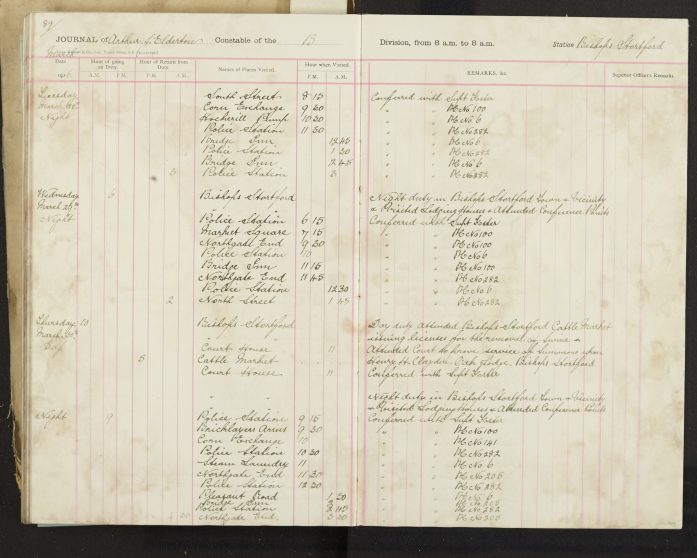 89
JOURNAL of Arthur J. Elderton Constable of the B Division, from 8 a.m. to 8 a.m. Station Bishops Stortford
Date Hour of going on Duty. Hour of Return from Duty. Names of Places Visited. Hour when Visited. REMARKS, &c. Superior Officer's Remarks.
A.M. P.M. A.M. P.M. P.M. A.M.
Tuesday South Street 8 15 Conferred with Supt Foster
March Corn Exchange 9 30 " " PC No 100
Night Hockerill Pump 10 30 " " PC No 6
Police Station 11 30 " " PC No 282
Bridge Inn 12 45 " " PC No 6
Police Station 1 30 " " PC No 282
Bridge Inn 2 45 " " PC No 6
3 Police Station 3 " " PC No 282
Wednesday 6 Bishops Stortford Night duty in Bishops Stortford Town & Vicinity
March " & Visited Lodging Houses & Attended Conference Points
Night Police Station 6 15 Conferred with Supt Foster
Market Square 7 15 " " PC No 100
Northgate End 9 30 " " PC No 100
Police Station 10 " " PC No 6
Bridge Inn 11 15 " " PC No 100
Northgate End 11 45 " " PC No 282
Police Station 12 30 " " PC No 6
2 North Street 1 45 " " PC No 282
Thursday 10 Bishops Stortford Day duty attended Bishops Stortford Cattle Market
March " issuing licenses for the removal of Swine &
Day Court House 11 Attended Court to prove service of Summons upon
5 Cattle Market Henry H. Oak Lodge, Bishops Stortford
Court House 11 Conferred with Supt Foster
" Night duty in Bishops Stortford Town & Vicinity
" & Visited Lodging Houses & Attended Conference Points
Night 9 Police Station 9 15 Conferred with Supt Foster
Bricklayers Arms 9 30 " " PC No 100
Corn Exchange 10 " " PC No 141
Police Station 10 30 " " PC No 282
Steam Laundry 11 " " PC No 6
Northgate End 11 30 " " PC No 205
Police Station 12 30 " " PC No 282
Pleasant Road 1 30 " " PC No 6
Bridge Inn 2 " " PC No 205
Police Station 2 45 " " PC No 282
3 30 Northgate End 3 30 " " PC No 205